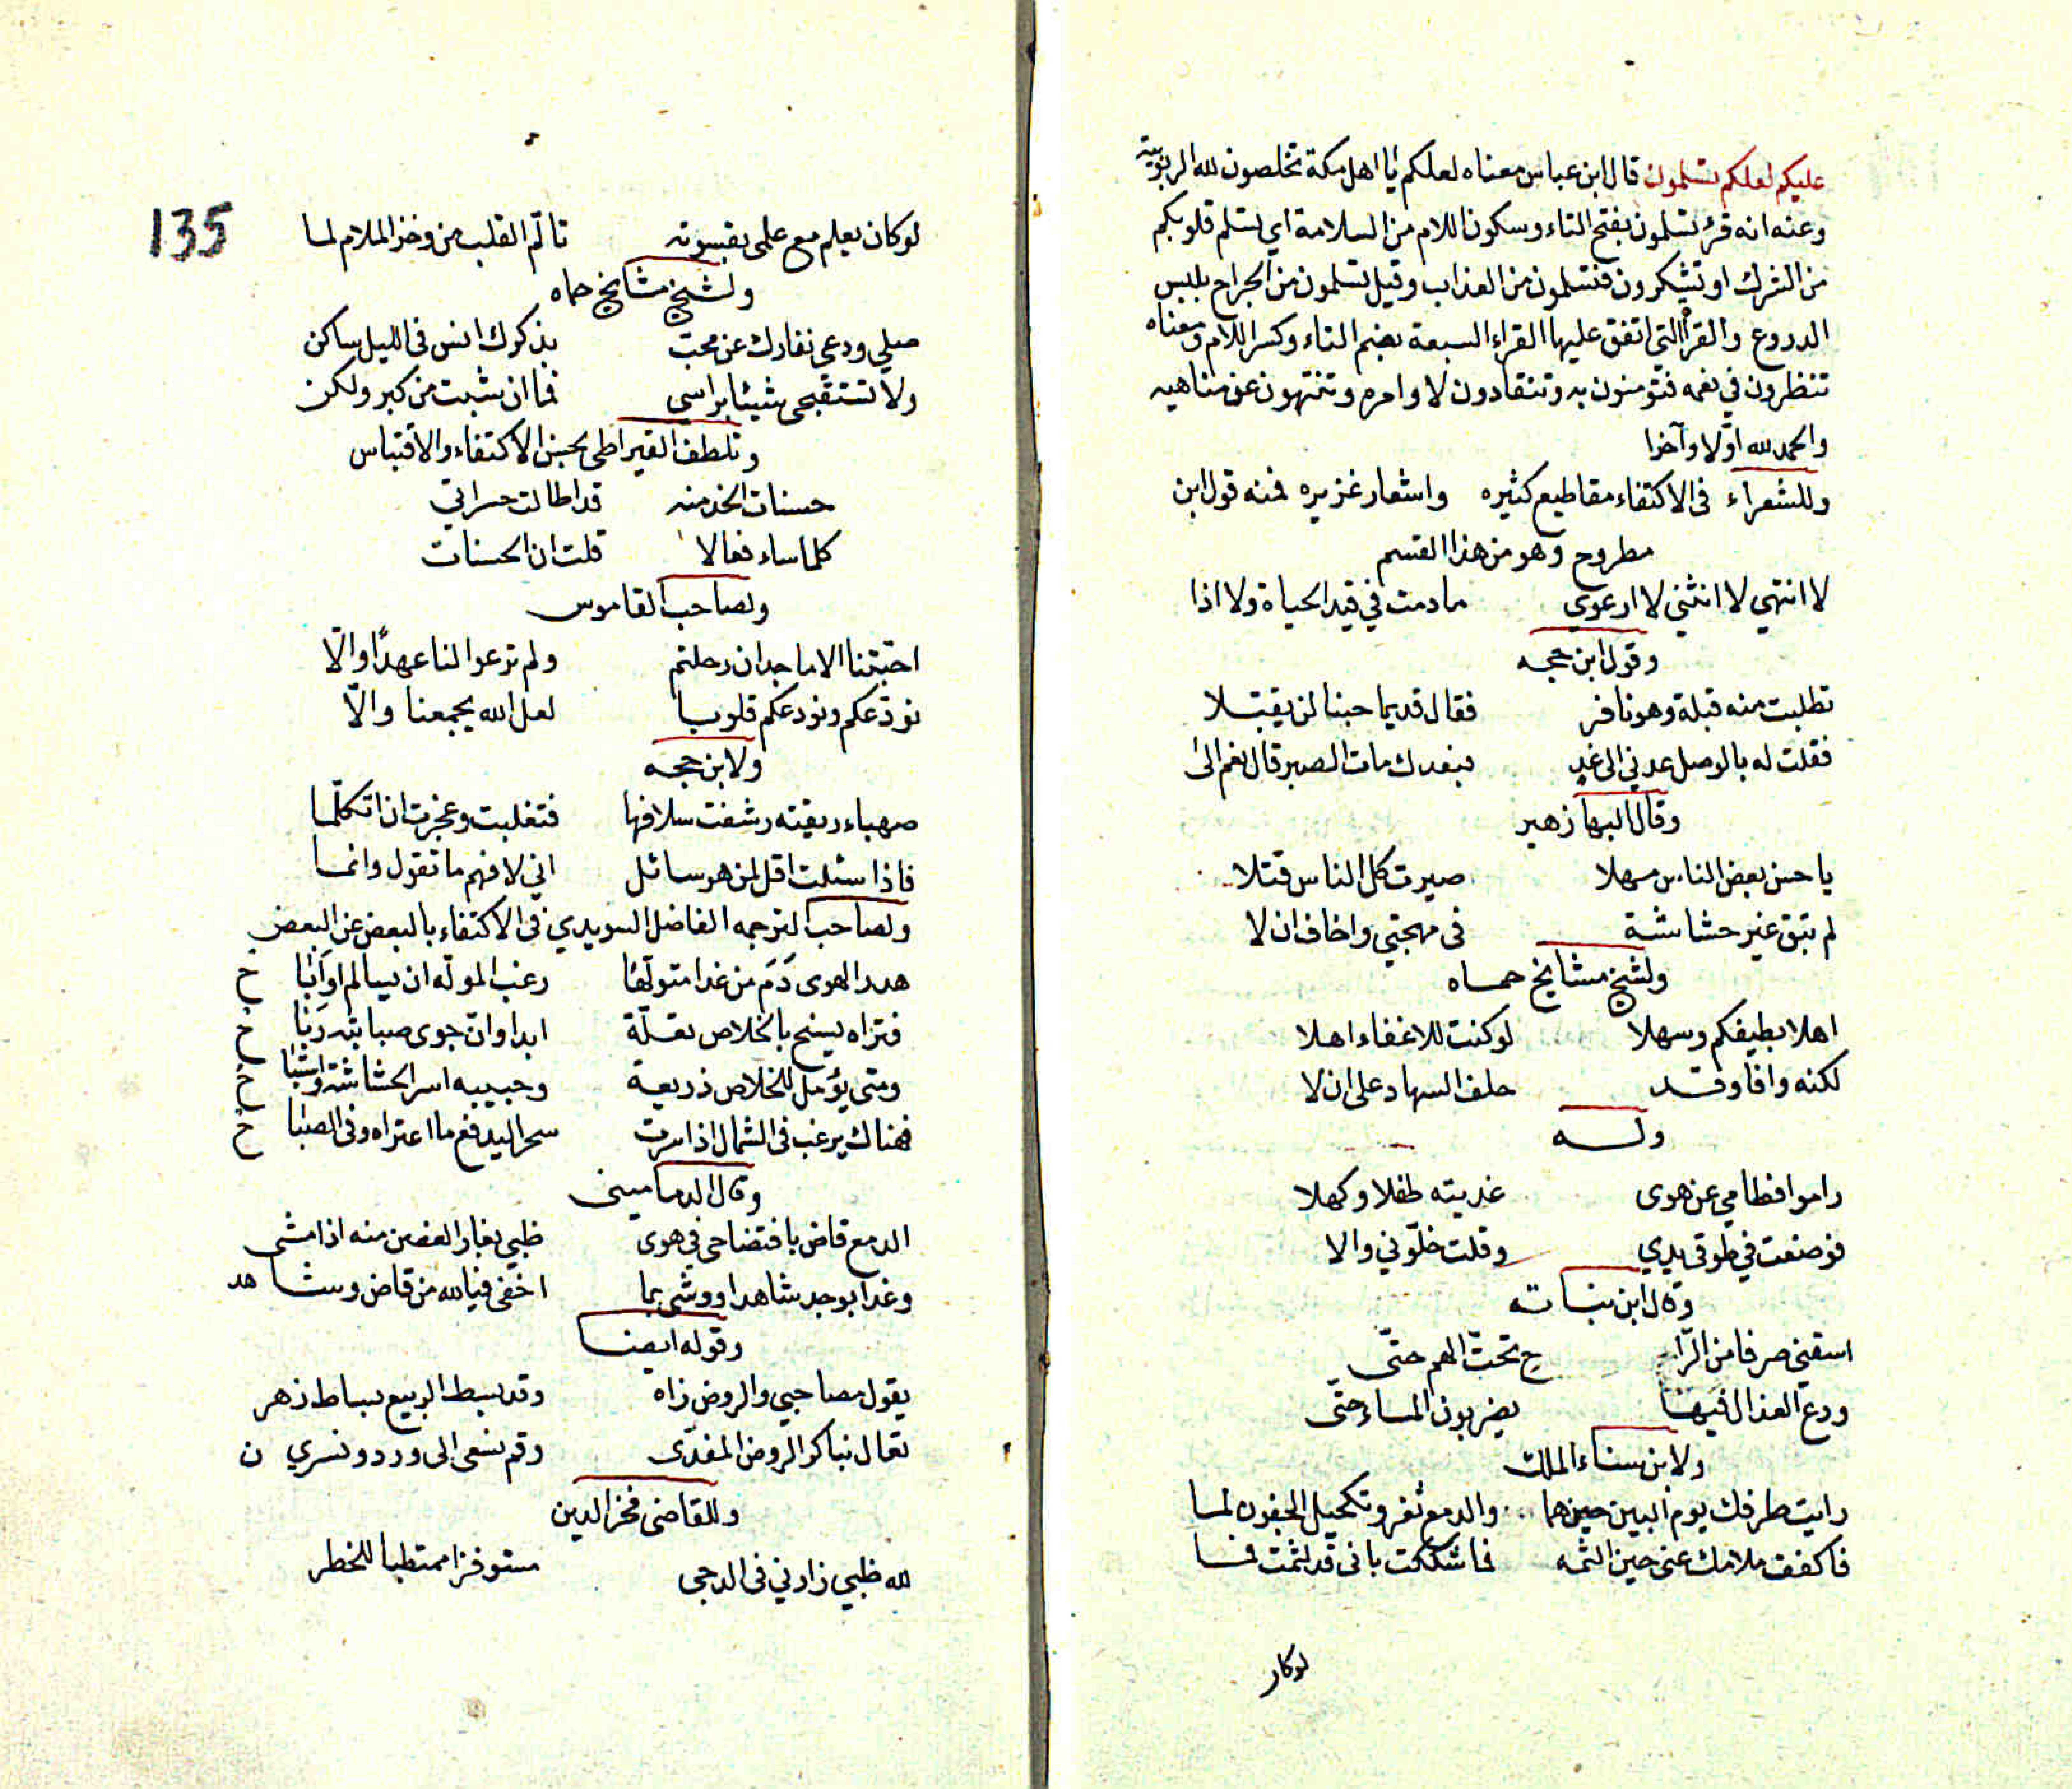 عليكم لعلكم تسلمون قال ابن عباس معناه لعلكم يا اهل مكة تخلصون لله الربوبية
وعنه انه قرئ تسلمون بفتح التاء وسكون اللام من السلامة اي تسلم قلوبكم
من الشرك او تشكرون فتسلمون من العذاب وقيل تسلمون من الجراح بلبس
الدروع والقراء التي اتفق عليها القراء السبعة بضم التاء وكسر اللام ومعناه
تنظرون في نعمه فتؤمنون به وتنقادون لاوامره وتنتهون عن مناهيه
والحمد لله اوّلا وآخرا
وللشعراء في الاكتفاء مقاطيع كثيره واشعار غزيره فمنه قول ابن
مطروح وهو من هذا القسم
لا انتهي لا انثني لا ارعوي مادمت في قيد الحياة ولا اذا
وقول ابن حجه
تطلبت منه قبلة وهو نافر فقال قديما حبنا لن يقبلا
فقلت له بالوصل عدني الى غد فبعدك مات الصبر قال نعم الى
وقال البها زهير
يا حسن بعض الناس مهلا صيرت كل الناس قتلا
لم تبق غير حشاشة في مهجتي واخاف ان لا
ولشيخ مشايخ حماه
اهلا بطيفكم وسهلا لو كنت للاغفاء اهلا
لكنه وافا وقد حلف السهاد على ان لا
وله
راموا فطامي عن هوى غديته طفلا وكهلا
فوضعت في طوقي يدي وقلت خلّوني والا
وقال ابن نباته
اسقني صرفا من الرّا ح تحتّ الهم حتّى
ودع العذال فيها يضربون الماء حتّى
ولابن سناء الملك
رايت طرفك يوم البين حين هما والدمع ثغر وتكحيل الجفون لما
فاكفف ملامك عني حين الثمه فما شككت باني قد لثمت فما
لوكان
135
لوكان يعلم مع علمي بقسوته تالّم القلب من وخز الملام لما
ولشيخ مشايخ حماه
صلي ودعي نفارك عن محبّ بذكرك انس في الليل ساكن
ولا تستقبحي شيبا براسي فما ان شبت من كبر ولكن
وتلطف القيراطي بحسن الاكتفاء والاقتباس
حسنات الخد منه قد اطالت حسراتي
كلما ساء فعالا قلت ان الحسنات
ولصاحب القاموس
احبّتنا الاماجد ان رحلتم ولم ترعوا لنا عهدًا والّا
نودّعكم ونودعكم قلوبا لعل الله يجمعنا والّا
ولابن حجه
صهباء ريقته رشفت سلافها فتغلبت وعجزت ان اتكلّما
فاذا سئلت اقل لمن هو سائل اني لافهم ما تقول وانما
ولصاحب الترجمه الفاضل السويدي في الاكتفاء بالبعض عن البعض
هدر الهوى دَمَ من غدا متولّها رغب المولّه ان يسالم او آبا ح
فتراه يسنح بالخلاص تعلّة ابدا وانّ جوى صبابته ربا ح
ومتى يؤمل للخلاص ذريعة وحبيبه اسر الحشاشة واستبا ح
فهناك يرغب في الشمال اذا سرت سحرا ليدفع ما اعتراه وفي الصبا ح
وقال الدماميني
الدمع قاض بافتضاحي في هوى ظبي يغار الغصن منه اذا مشى
وغدا بوجد شاهدا ووشى بما اخفي فيا لله من قاض وشا هد
وقوله ايضا
يقول مصاحبي والروض زاه وقد بسط الربيع بساط زهر
تعال نباكر الروض المفدّى وقم نسعى الى ورد ونسري ن
وللقاضي فخر الدين
لله ظبي زارني في الدجى مستوفزا ممتطيا للخطر